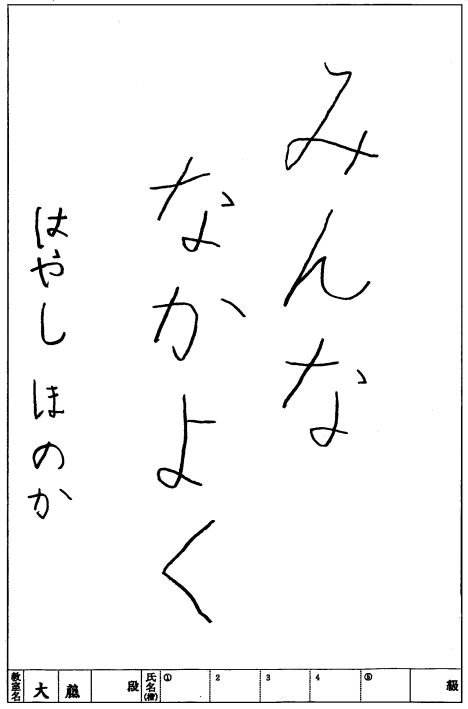 みんな
なかよく
はやし ほのか
教室名 大 藤 段 氏名(楷) ① 2 3 4 ⑤ 級